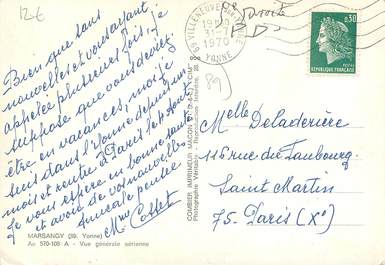 12€
Bien que sans
nouvelles et vous ayant
appelée plusieurs fois, je
suppose que vous devez
être en vacances, moi je
suis dans l'Yonne depuis un
mois et rentre à Paris le 4 Août
Je vous espère en bonne santé
et avoir de vos nouvelles
Amicale pensée
Mme Cosset
MARSANGY (89. Yonne)
An 570-108 A - Vue générale aérienne
COMBIER IMPRIMEUR MACON
89 VILLENEUVE
31-7
1970
YONNE
à droite
(89)
0,30
RÉPUBLIQUE FRANÇAISE
Melle Deladerière
116 rue du Faubourg
Saint Martin
75. Paris (Xe)